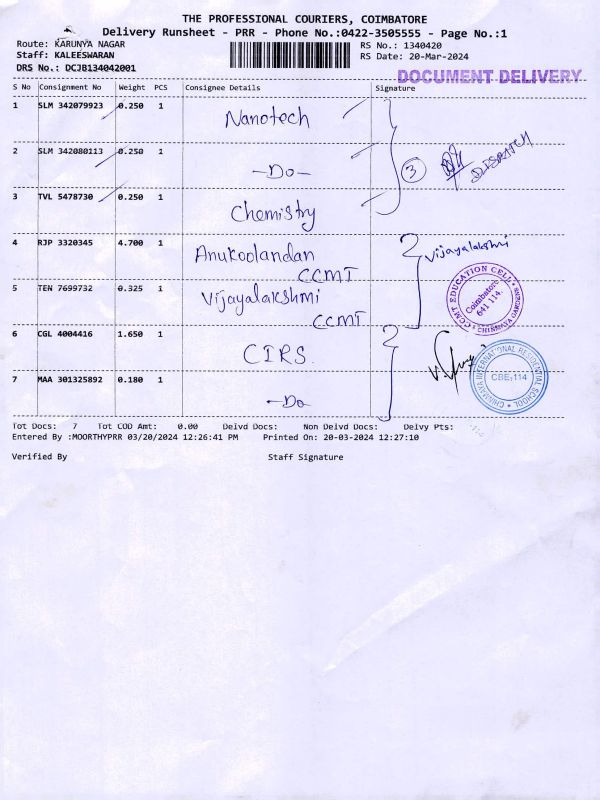 THE PROFESSIONAL COURIERS, COIMBATORE
Delivery Runsheet - PRR - Phone No.:0422-3505555 - Page No.:1
Route: KARUNYA NAGAR
Staff: KALEESWARAN
DRS No.: DCJB134042001
RS No.: 1340420
RS Date: 20-Mar-2024
DOCUMENT DELIVERY
S No Consignment No Weight PCS Consignee Details Signature
1 SLM 342079923 0.250 1 Nanotech
2 SLM 342080113 0.250 1 -Do-
3 DISPATCH
3 TVL 5478730 0.250 1 Chemistry
4 RJP 3320345 4.700 1 Anukoolandan CCMT
Vijayalakshmi
5 TEN 7699732 0.325 1 Vijayalakshmi CCMT
CCMT EDUCATION CELL
Coimbatore
641 114.
6 CGL 4004416 1.650 1 CIRS.
7 MAA 301325892 0.180 1 -Do-
CHINMAYA INTERNATIONAL RESIDENTIAL SCHOOL
CBE-114
Tot Docs: 7 Tot COD Amt: 0.00 Delvd Docs: Non Delvd Docs: Delvy Pts:
Entered By :MOORTHYPRR 03/20/2024 12:26:41 PM Printed On: 20-03-2024 12:27:10
Verified By Staff Signature